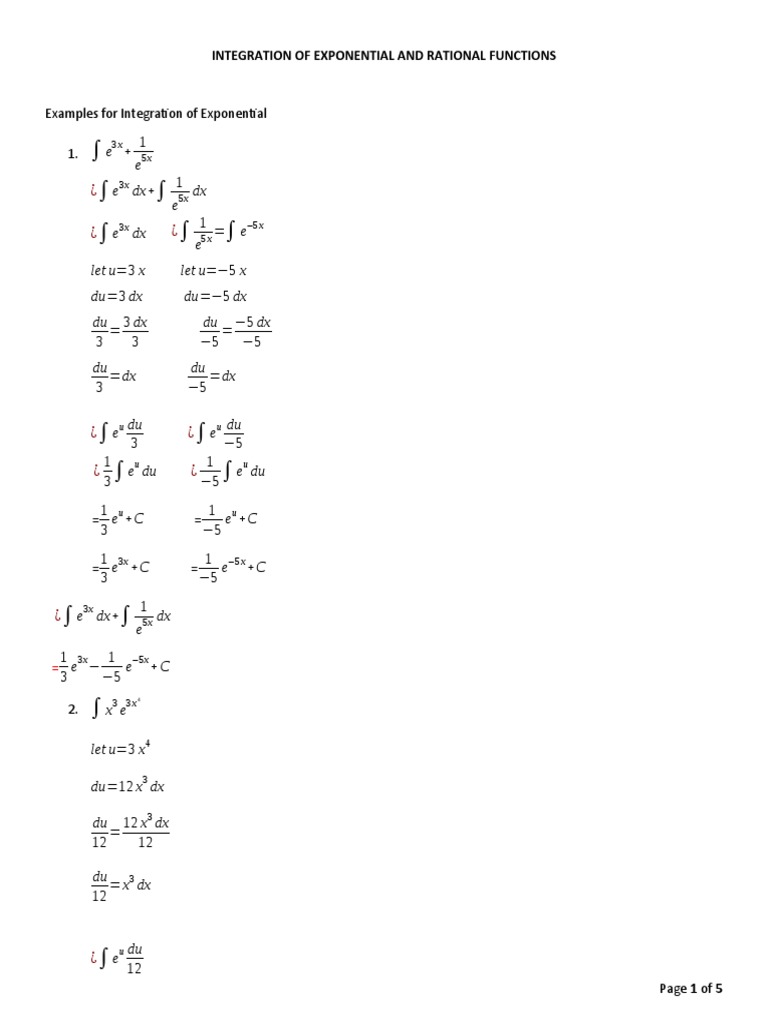 INTEGRATION OF EXPONENTIAL AND RATIONAL FUNCTIONS
Examples for Integration of Exponential
1. ∫ e^{3x} + \frac{1}{e^{5x}}
¿ ∫ e^{3x} dx + ∫ \frac{1}{e^{5x}} dx
¿ ∫ e^{3x} dx ¿ ∫ \frac{1}{e^{5x}} = ∫ e^{−5x}
let u = 3 x let u = −5 x
du = 3 dx du = −5 dx
\frac{du}{3} = \frac{3 dx}{3} \frac{du}{−5} = \frac{−5 dx}{−5}
\frac{du}{3} = dx \frac{du}{−5} = dx
¿ ∫ e^{u} \frac{du}{3} ¿ ∫ e^{u} \frac{du}{−5}
¿ \frac{1}{3} ∫ e^{u} du ¿ \frac{1}{−5} ∫ e^{u} du
= \frac{1}{3} e^{u} + C = \frac{1}{−5} e^{u} + C
= \frac{1}{3} e^{3x} + C = \frac{1}{−5} e^{−5x} + C
¿ ∫ e^{3x} dx + ∫ \frac{1}{e^{5x}} dx
= \frac{1}{3} e^{3x} − \frac{1}{−5} e^{−5x} + C
2. ∫ x^{3} e^{3x^{4}}
let u = 3 x^{4}
du = 12 x^{3} dx
\frac{du}{12} = \frac{12 x^{3} dx}{12}
\frac{du}{12} = x^{3} dx
¿ ∫ e^{u} \frac{du}{12}
Page 1 of 5